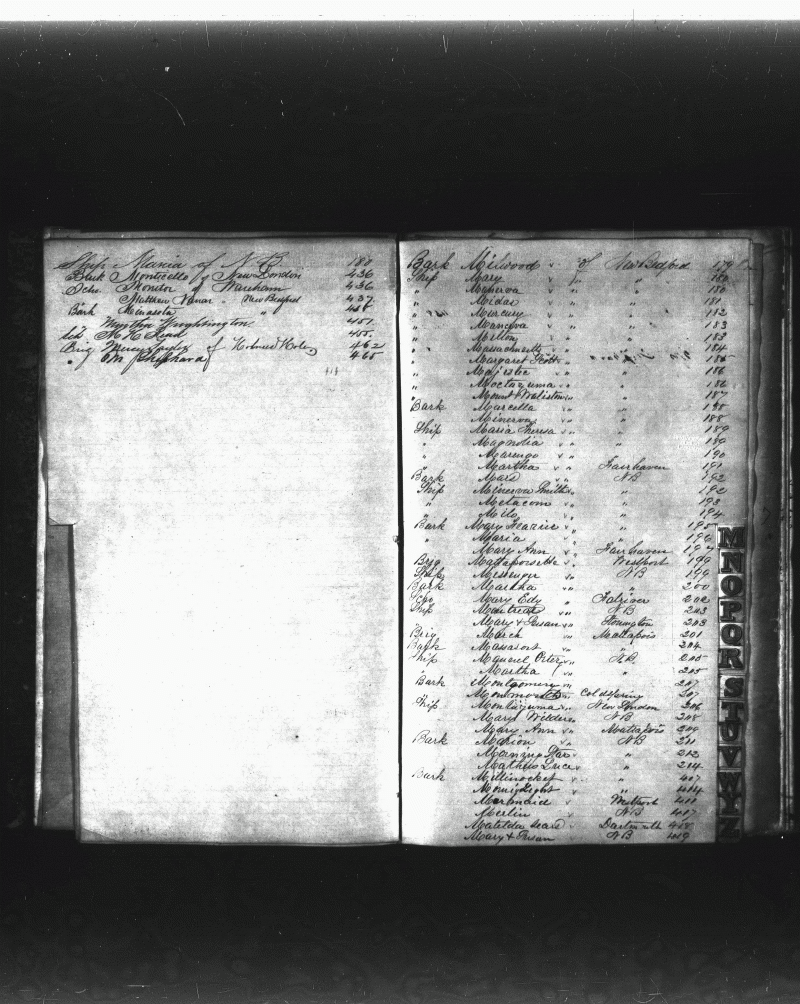 Ship Maria of N. B. 188
Bark Monticello of New London 436
Schr Monitor of Wareham 436
Matthew " New Bedford 437
Bark Minnesota "
451
Sch 455
Brig Mercy Taylor of Holmes Hole 462
" 465
Bark Milwood " of New Bedford 179
Ship Mary " " 180
" Minerva " " 180
" Midas " " 181
" Mercury " " 182
" Minerva " " 183
" Milton " " 183
" Massachusetts " " 184
" Margaret Scott " " 185
" Majestic " " 186
" Moctazuma " " 186
" Mount Wollaston " " 187
Bark Marcella " 188
" Minerva " " 188
Ship Maria Theresa " " 189
" Magnolia " " 189
" Marengo " " 190
" Martha " " Fairhaven 191
Bark Mars " NB 192
Ship Minerva Smith " " 192
" Metacom " " 193
" Milo " " 194
Bark Mary Frazier " " 195
" Maria " " 196
Mary Ann " " Fairhaven 197
Brig Mattapoisett " " Westport 199
Ship Messenger " " NB 199
Bark Martha " " 200
Scho Mary Edy " Falriver 202
Ship Montreal " " NB 203
Mary & Susan " " Stonington 203
Brig March " " Mattapois 201
Bark Massasoit " " " 204
Ship Manuel Orter " " NB 205
" Martha " " 205
Bark Montgomery " " 207
Coldspring 207
Ship Montezuma " " New London 206
Mary Wilder " NB 208
Mary Ann " " Mattapois 209
Bark Marion " " NB 211
Morning Star " " 212
Mathew Luce " " 214
Bark Millinocket " " 407
Morning Light " " 404
Mermaid " Westport 411
Merlin " NB 417
Matilda Sears " Dartmouth 418
Mary & Susan " NB 419
M
N
O
P
Q
R
S
T
U
V
W
Y
Z